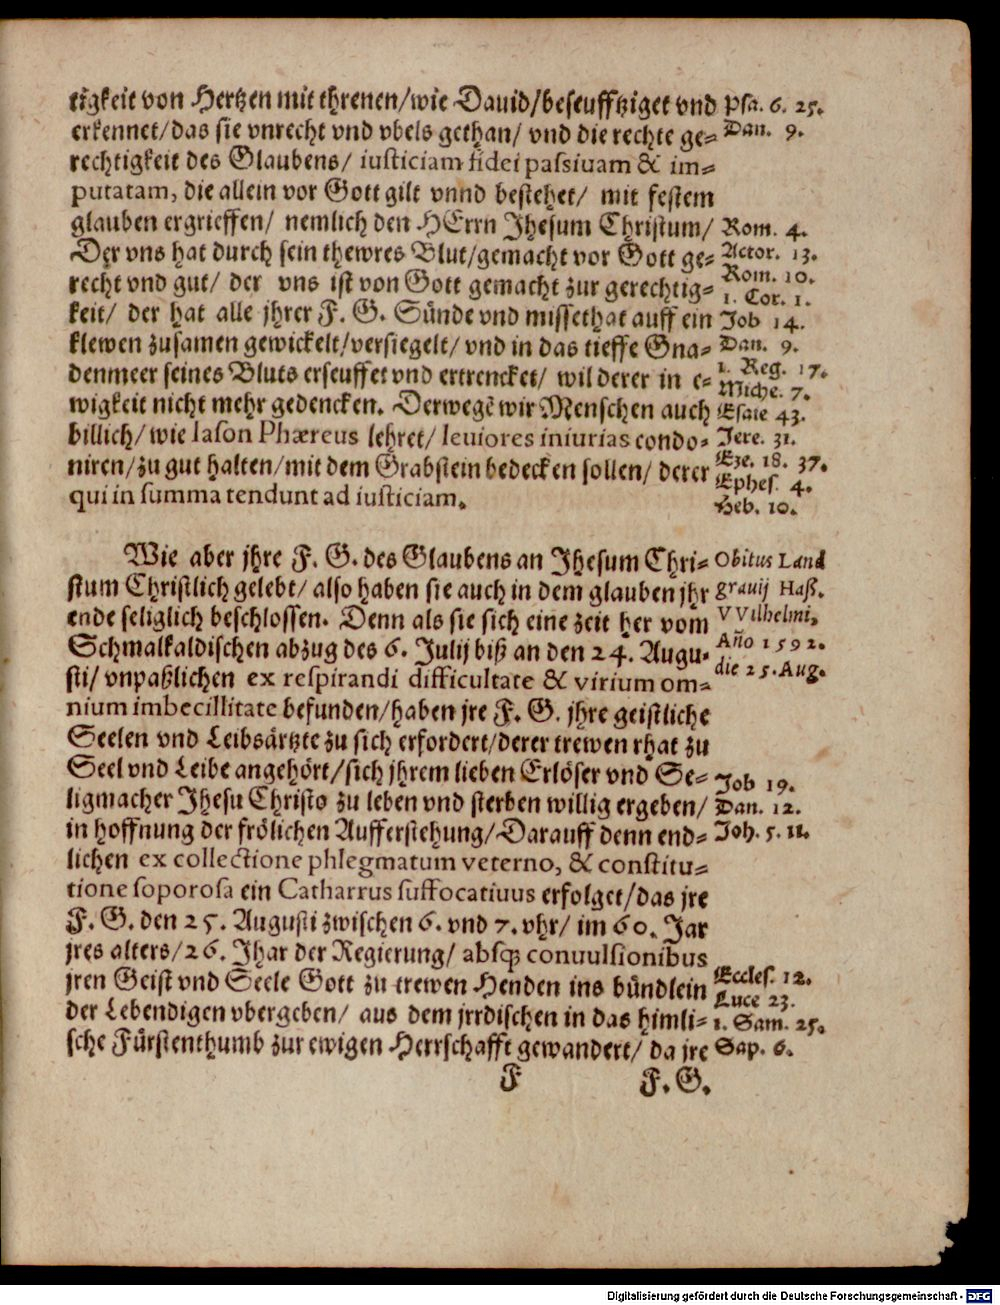 tigkeit von Hertzen mit threnen/wie Dauid/beseufftziget vnd
erkennet/das sie vnrecht vnd vbels gethan/ vnd die rechte ge-
rechtigkeit des Glaubens/ iusticiam fidei passiuam & im-
putatam, die allein vor Gott gilt vnnd bestehet/ mit festem
glauben ergrieffen/ nemlich den HErrn Jhesum Christum/
Der vns hat durch sein thewres Blut/gemacht vor Gott ge-
recht vnd gut/ der vns ist von Gott gemacht zur gerechtig-
keit/ der hat alle jhrer F. G. Sünde vnd missethat auff ein
klewen zusamen gewickelt/versiegelt/ vnd in das tieffe Gna-
denmeer seines Bluts erseuffet vnd ertrencket/ wil derer in e-
wigkeit nicht mehr gedencken. Derwegē wir Menschen auch
billich/ wie Iason Phæreus lehret/ leuiores iniurias condo-
niren/zu gut halten/mit dem Grabstein bedecken sollen/ derer
qui in summa tendunt ad iusticiam.
Psa. 6. 25.
Dan. 9.
Rom. 4.
Actor. 13.
Rom. 10.
1. Cor. 1.
Job 14.
Dan. 9.
1. Reg. 17.
Miche. 7.
Esaie 43.
Jere. 31.
Eze. 18. 37.
Ephes. 4.
Heb. 10.
Wie aber jhre F. G. des Glaubens an Jhesum Chri-
stum Christlich gelebt/ also haben sie auch in dem glauben jhr
ende seliglich beschlossen. Denn als sie sich eine zeit her vom
Schmalkaldischen abzug des 6. Julij biß an den 24. Augu-
sti/ vnpaßlichen ex respirandi difficultate & virium om-
nium imbecillitate befunden/haben jre F. G. jhre geistliche
Seelen vnd Leibsärtzte zu sich erfordert/derer trewen rhat zu
Seel vnd Leibe angehört/sich jhrem lieben Erlöser vnd Se-
ligmacher Jhesu Christo zu leben vnd sterben willig ergeben/
in hoffnung der frölichen Aufferstehung/Darauff denn end-
lichen ex collectione phlegmatum veterno, & constitu-
tione soporosa ein Catharrus suffocatiuus erfolget/das jre
F. G. den 25. Augusti zwischen 6. vnd 7. vhr/ im 60. Jar
jres alters/26. Jhar der Regierung/ absq; conuulsionibus
jren Geist vnd Seele Gott zu trewen Henden ins bündlein
der Lebendigen vbergeben/ aus dem jrrdischen in das himli-
sche Fürstenthumb zur ewigen Herrschafft gewandert/ da jre
Obitus Land
grauij Haß.
VVilhelmi,
Año 1592.
die 25. Aug.
Job 19.
Dan. 12.
Joh. 5. 11.
Eccles. 12.
Luce 23.
1. Sam. 25.
Sap. 6.
F
F. G.
Digitalisierung gefördert durch die Deutsche Forschungsgemeinschaft - DFG